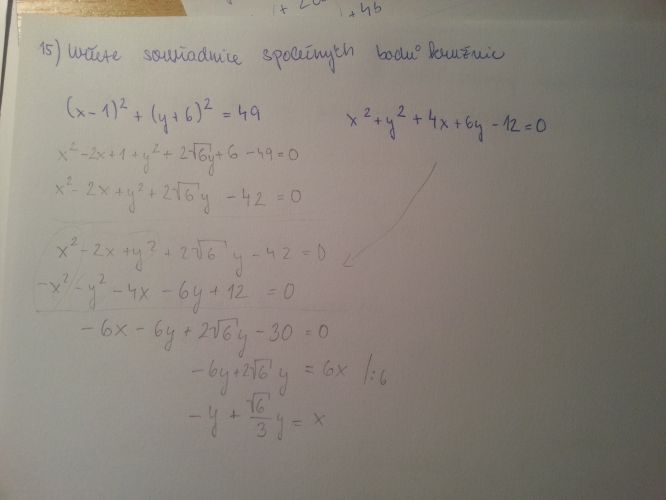 15) určete souřadnice společných bodů kružnic
(x-1)² + (y+6)² = 49
x² + y² + 4x + 6y - 12 = 0
x² - 2x + 1 + y² + 2√6y + 6 - 49 = 0
x² - 2x + y² + 2√6 y - 42 = 0
x² - 2x + y² + 2√6 y - 42 = 0
-x² - y² - 4x - 6y + 12 = 0
-6x - 6y + 2√6y - 30 = 0
-6y + 2√6 y = 6x /:6
-y + √6/3 y = x